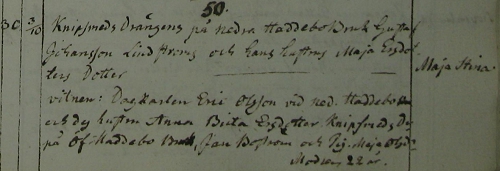 50.
30 3/10 Knipsmeds Drängens på nedra Haddebo Bruk Gustaf
Johansson Lindströms och hans hustrus Maja Ersdot-
ters Dotter Maja Stina.
vitnen: Dagkarlen Eric Olsson vid ned. Haddebo
och dess hustru Anna Brita Ersdotter Knipsmeds
på Of. Haddebo Bruk, Jan Boström och Pig. Maja Olsd:
Modren 22 år.